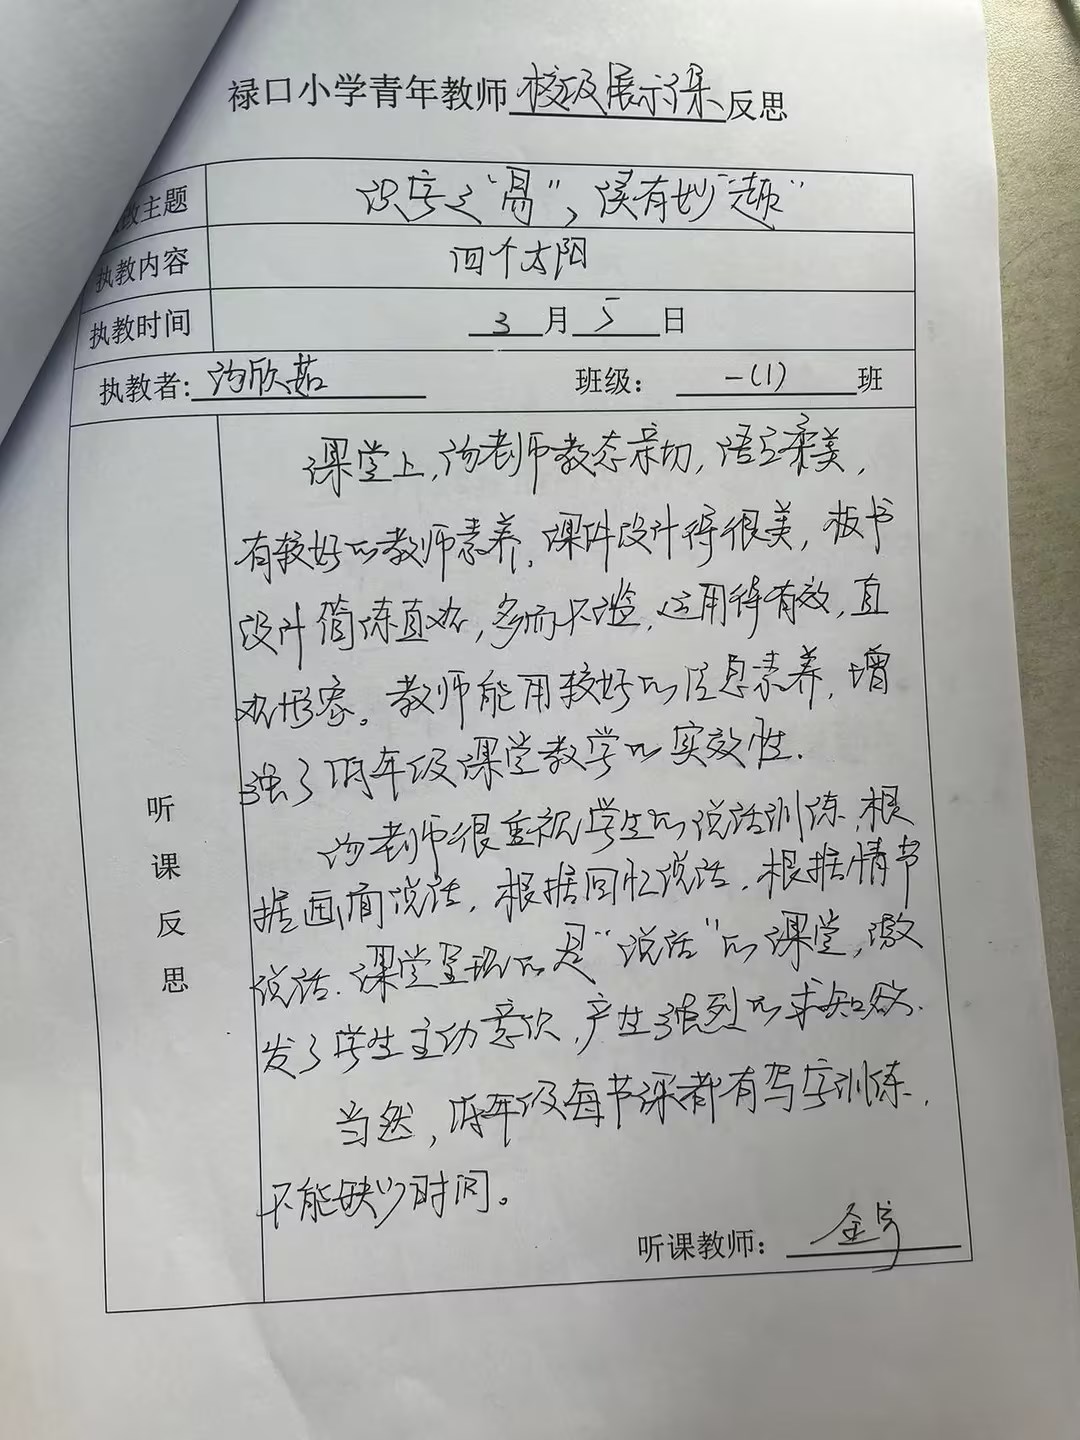 禄口小学青年教师校级展示课反思
教主题 识字之“易”，读有妙“趣”
执教内容 四个太阳
执教时间 3月5日
执教者：汤欣茹 班级：一(1)班
听课反思
课堂上，汤老师教态亲切，语言柔美，
有较好的教师素养，课件设计得很美，板书
设计简练直观，多而不滥，运用得有效，直
观形象。教师能用较好的信息素养，增
强了低年级课堂教学的实效性.
汤老师很重视学生的说话训练，根
据画面说话，根据回忆说话，根据情节
说话.课堂呈现的是“说话”的课堂，激
发了学生主动意识，产生强烈的求知欲.
当然，低年级每节课都有写字训练，
不能缺少时间。
听课教师：金